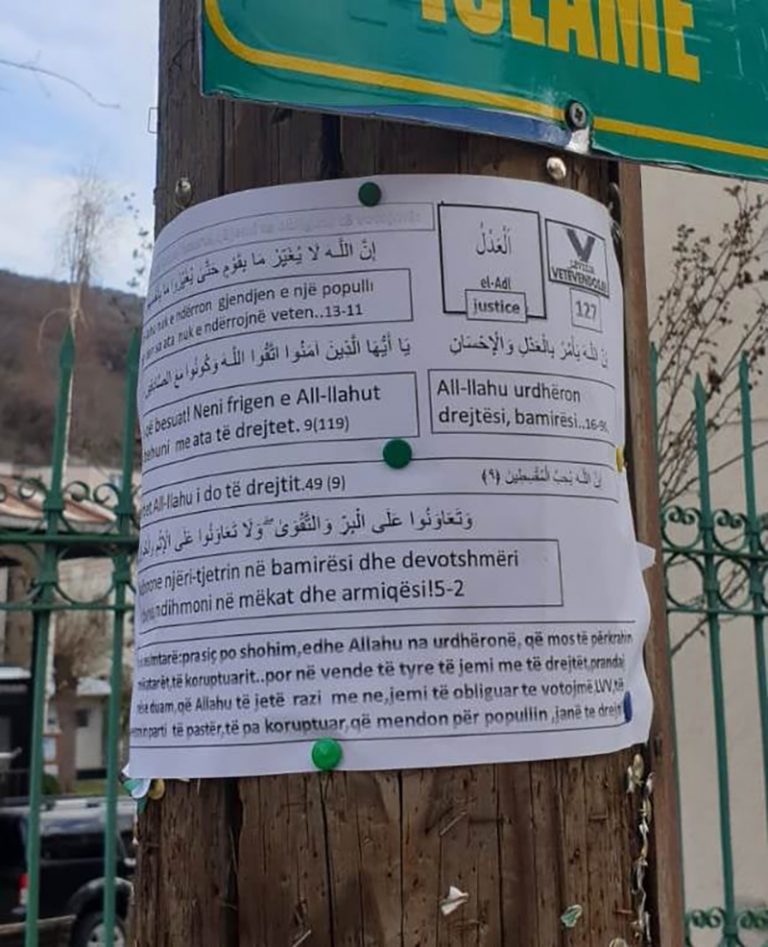 ISLAME
të votojmë
إِنَّ اللَّـهَ لَا يُغَيِّرُ مَا بِقَوْمٍ حَتَّىٰ يُغَيِّرُوا مَا
nuk e ndërron gjendjen e një populli
sa ata nuk e ndërrojnë veten..13-11
اَلْعَدْلُ
el-Adl
justice
LËVIZJA
VETËVENDOSJE!
127
يَا أَيُّهَا الَّذِينَ آمَنُوا اتَّقُوا اللَّـهَ وَكُونُوا مَعَ الصَّادِقِينَ
إِنَّ اللَّـهَ يَأْمُرُ بِالْعَدْلِ وَالْإِحْسَانِ
besuat! Neni frigen e All-llahut
behuni me ata të drejtet. 9(119)
All-llahu urdhëron
drejtësi, bamirësi..16-90
All-llahu i do të drejtit.49 (9)
إِنَّ اللَّـهَ يُحِبُّ الْمُقْسِطِينَ (٩)
وَتَعَاوَنُوا عَلَى الْبِرِّ وَالتَّقْوَىٰ ۖ وَلَا تَعَاوَنُوا عَلَى الْإِثْمِ
njëri-tjetrin në bamirësi dhe devotshmëri
ndihmoni në mëkat dhe armiqësi!5-2
prasiç po shohim,edhe Allahu na urdhëronë, që mos të përkrahin
të koruptuarit..por në vende të tyre të jemi me të drejtët,prandaj
duam,që Allahu të jetë razi me ne,jemi të obliguar te votojmë LVV,të
parti të pastër,të pa koruptuar,që mendon për popullin ,janë te drejt